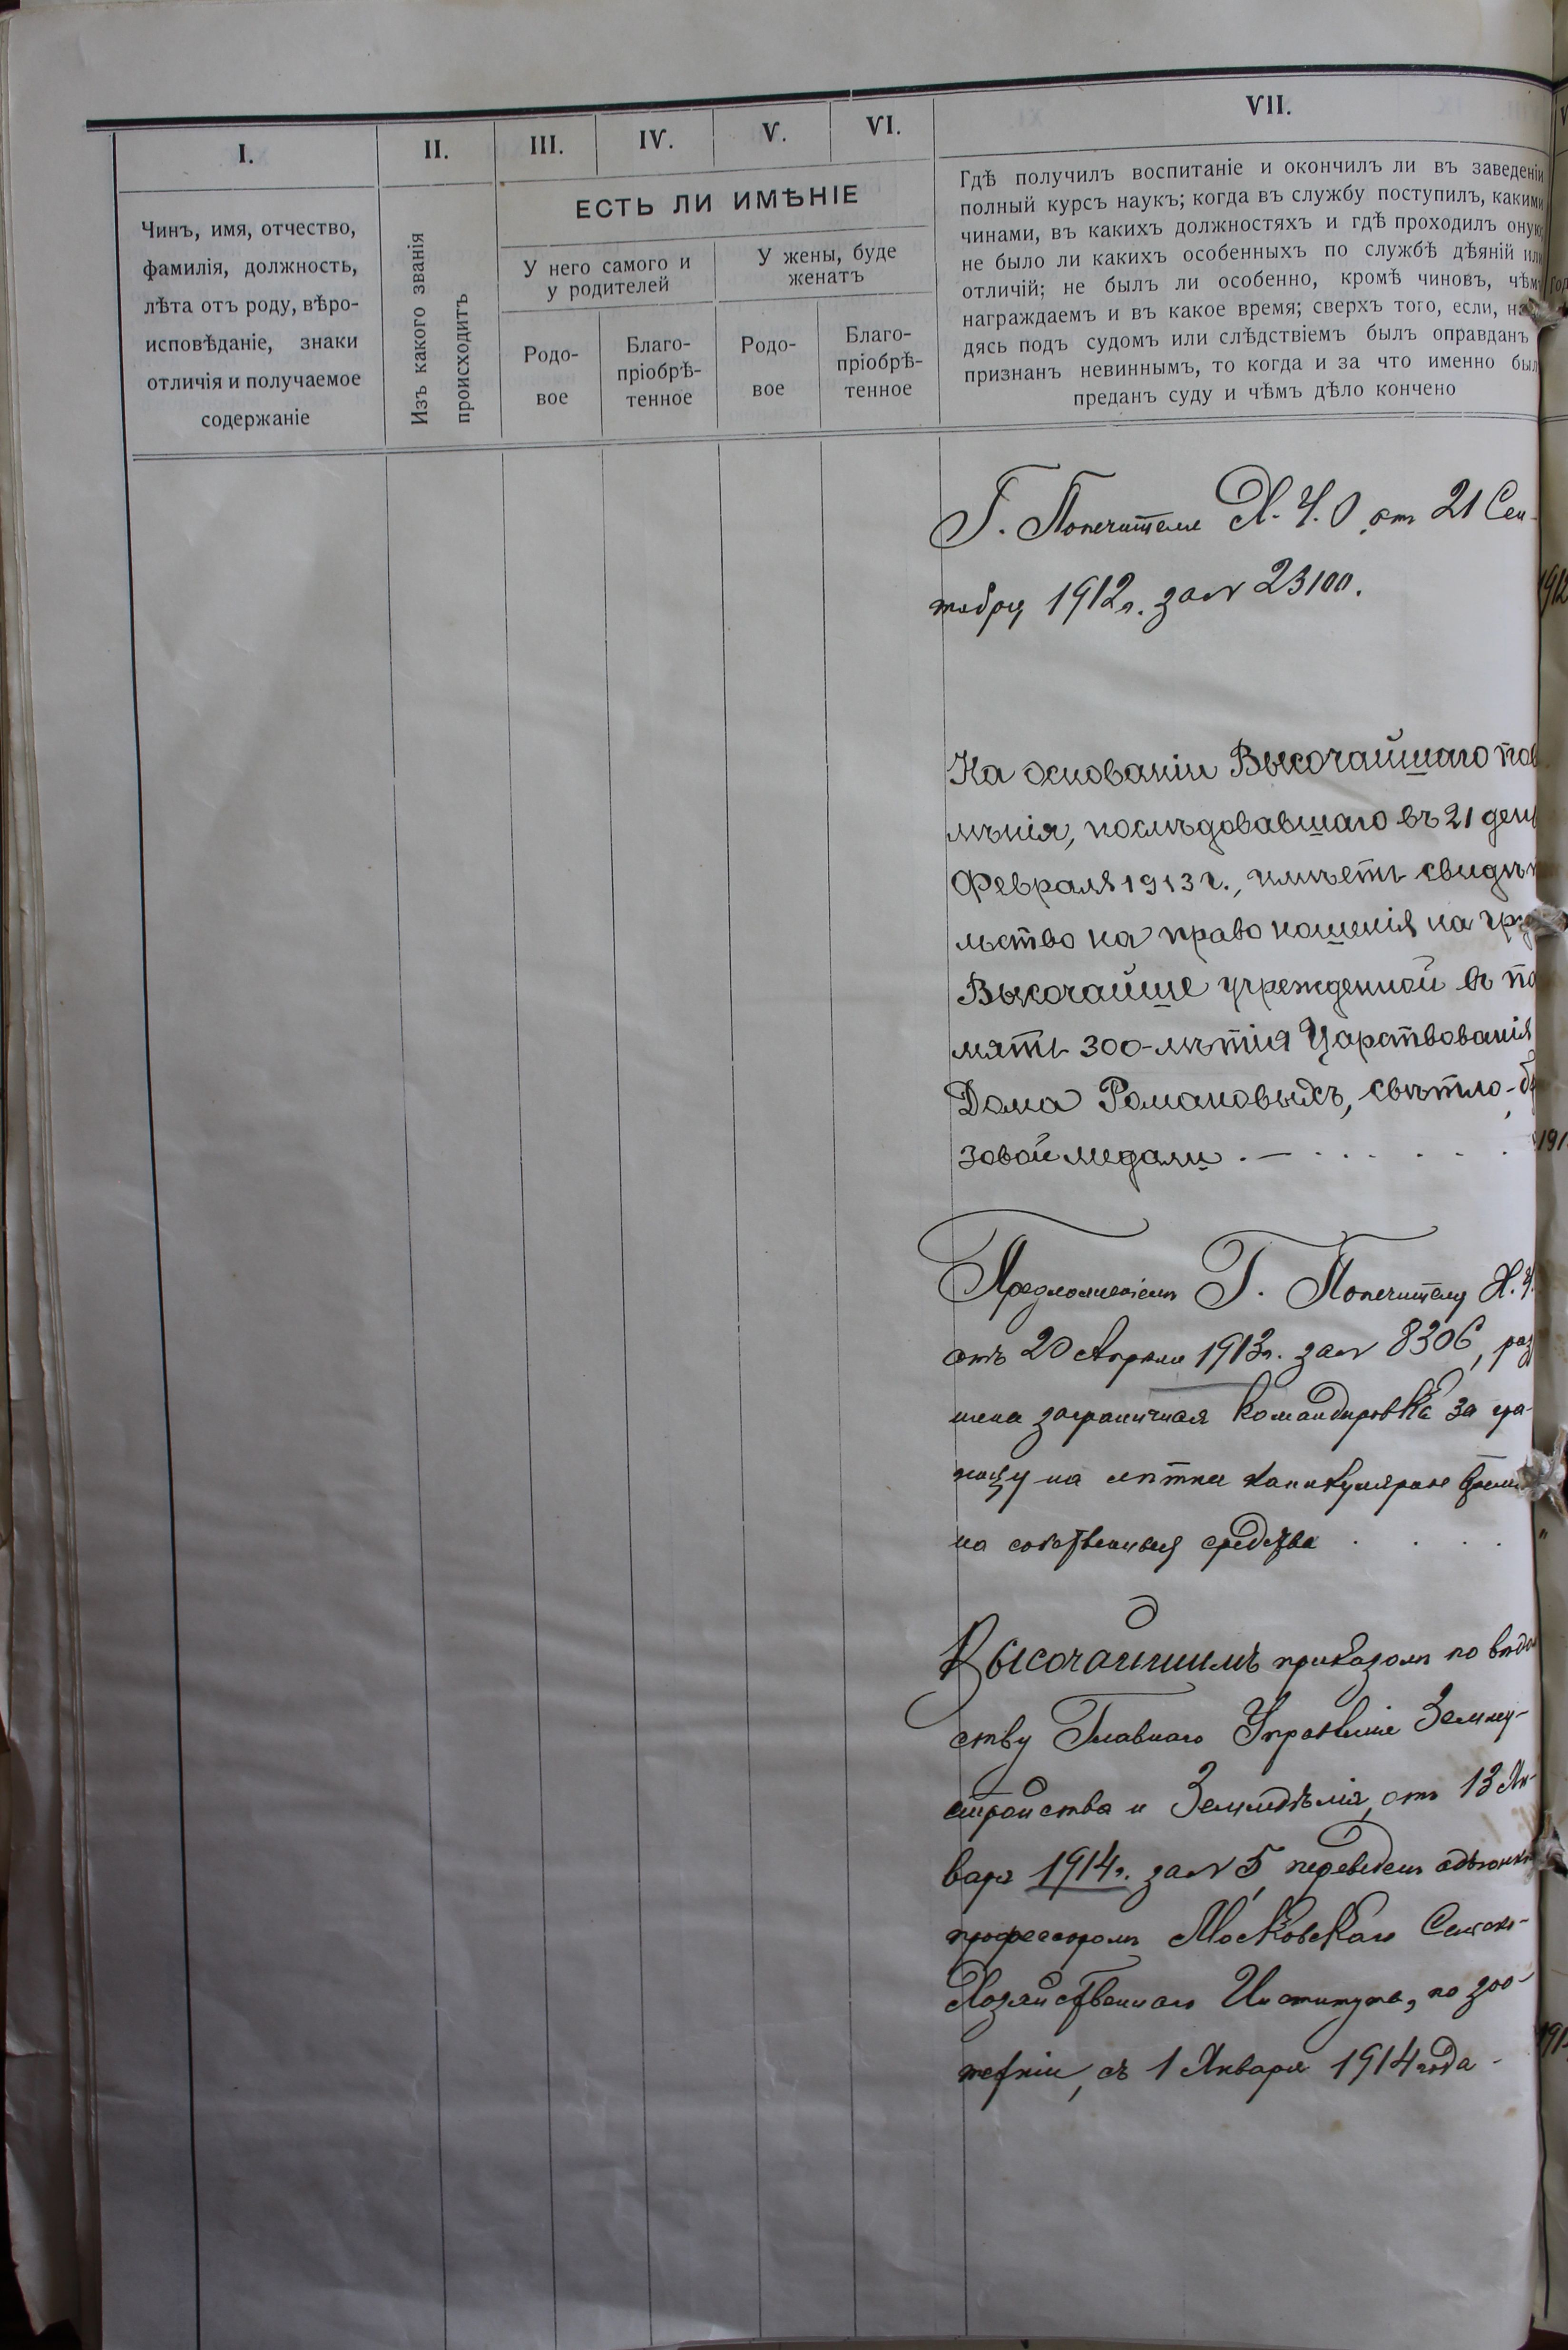 I.
II.
III.
IV.
V.
VI.
VII.
Чинъ, имя, отчество,
фамилія, должность,
лѣта отъ роду, вѣро-
исповѣданіе, знаки
отличія и получаемое
содержаніе
Изъ какого званія
происходитъ
ЕСТЬ ЛИ ИМѢНІЕ
У него самого и
у родителей
У жены, буде
женатъ
Родо-
вое
Благо-
пріобрѣ-
тенное
Родо-
вое
Благо-
пріобрѣ-
тенное
Гдѣ получилъ воспитаніе и окончилъ ли въ заведеніи
полный курсъ наукъ; когда въ службу поступилъ, какими
чинами, въ какихъ должностяхъ и гдѣ проходилъ оную;
не было ли какихъ особенныхъ по службѣ дѣяній или
отличій; не былъ ли особенно, кромѣ чиновъ, чѣмъ
награждаемъ и въ какое время; сверхъ того, если, на
дясь подъ судомъ или слѣдствіемъ былъ оправданъ
признанъ невиннымъ, то когда и за что именно был
преданъ суду и чѣмъ дѣло кончено
Г. Попечителя Х. У. О, от 21 Сен-
тября 1912 г. за № 23100.
1912
На основаніи Высочайшаго пов
лѣнія, послѣдовавшаго въ 21 день
Февраля 1913 г., имѣетъ свидѣт
льство на право ношенія на гру
Высочайше учрежденной въ па
мять 300-лѣтія Царствованія
Дома Романовыхъ, свѣтло-бр
зовой медали . — . . . . . .
191
Предложеніемъ Г. Попечителя Х. У.
отъ 20 Апрѣля 1913 г. за № 8306, раз
шена заграничная командировка за гра-
ницу на лѣтнее каникулярное время
на собственныя средства . . . .
Высочайшимъ приказомъ по вѣдом
ству Главнаго Управленія Землеу-
стройства и Земледѣлія, отъ 13 Ян-
варя 1914 г. за № 5, переведенъ адъюнктъ
профессоромъ Московскаго Сельско-
Хозяйственнаго Института, по зоо-
техніи, съ 1 Января 1914 года -
191